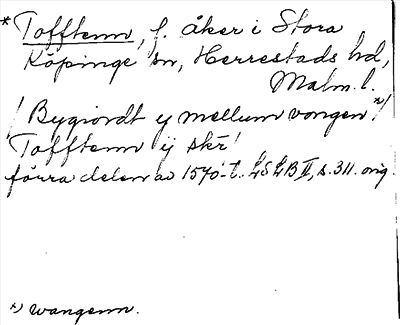 * Tofftenn, f. åker i Stora
Köpinge sn, Herrestads hd,
Malm. l.
/ Bygiordt y mellum vongen *)/
Tofftenn ij skr!
förra delen av 1570-t. LSLB II, s. 311. orig.
*) wangenn.